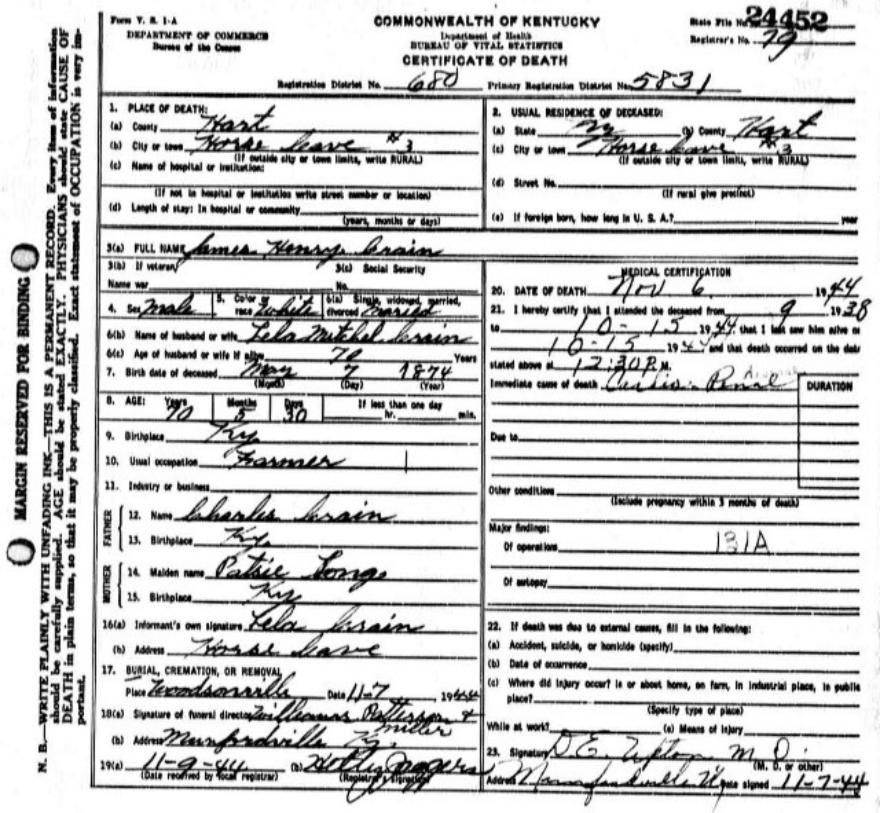 Form V. S. 1-A
DEPARTMENT OF COMMERCE
Bureau of the Census
COMMONWEALTH OF KENTUCKY
Department of Health
BUREAU OF VITAL STATISTICS
CERTIFICATE OF DEATH
State File No. 24452
Registrar's No. 79
Registration District No. 680 Primary Registration District No. 5831
MARGIN RESERVED FOR BINDING
N. B.—WRITE PLAINLY WITH UNFADING INK—THIS IS A PERMANENT RECORD. Every item of information
should be carefully supplied. AGE should be stated EXACTLY. PHYSICIANS should state CAUSE OF
DEATH in plain terms, so that it may be properly classified. Exact statement of OCCUPATION is very im-
portant.
1. PLACE OF DEATH:
(a) County Hart
(b) City or town Horse Cave #3
(If outside city or town limits, write RURAL)
(c) Name of hospital or institution:
(If not in hospital or institution write street number or location)
(d) Length of stay: In hospital or community
(years, months or days)
2. USUAL RESIDENCE OF DECEASED:
(a) State Ky (b) County Hart
(c) City or town Horse Cave #3
(If outside city or town limits, write RURAL)
(d) Street No.
(If rural give precinct)
(e) If foreign born, how long in U. S. A.? year
3(a) FULL NAME James Henry Crain
3(b) If veteran, 3(c) Social Security
Name war No.
4. Sex Male 5. Color or race White 6(a) Single, widowed, married, divorced Married
6(b) Name of husband or wife Lela Mitchel Crain
6(c) Age of husband or wife if alive 70 Years
7. Birth date of deceased May 7 1874
(Month) (Day) (Year)
8. AGE: Years Months Days If less than one day
70 5 30 hr. min.
9. Birthplace Ky
10. Usual occupation Farmer
11. Industry or business
FATHER
12. Name Charles Crain
13. Birthplace Ky
MOTHER
14. Maiden name Patsie Long
15. Birthplace Ky
16(a) Informant's own signature Lela Crain
(b) Address Horse Cave
17. BURIAL, CREMATION, OR REMOVAL
Place Woodsonville Date 11-7 1944
18(a) Signature of funeral director Williams Patterson & Miller
(b) Address Munfordville Ky.
19(a) 11-9-44 (b)
(Date received by local registrar) (Registrar's signature)
MEDICAL CERTIFICATION
20. DATE OF DEATH Nov 6 1944
21. I hereby certify that I attended the deceased from 9 1938
to 10-15 1944 that I last saw him alive on
10-15 1944 and that death occurred on the date
stated above at 12:30 P.M.
Immediate cause of death
DURATION
Due to
Other conditions
(Include pregnancy within 3 months of death)
Major findings:
Of operations 131A
Of autopsy
22. If death was due to external causes, fill in the following:
(a) Accident, suicide, or homicide (specify)
(b) Date of occurrence
(c) Where did injury occur? in or about home, on farm, in industrial place, in public
place?
(Specify type of place)
While at work? (e) Means of injury
23. Signature D. E. Upton M. D.
(M. D. or other)
Address Munfordville Ky Date signed 11-7-44